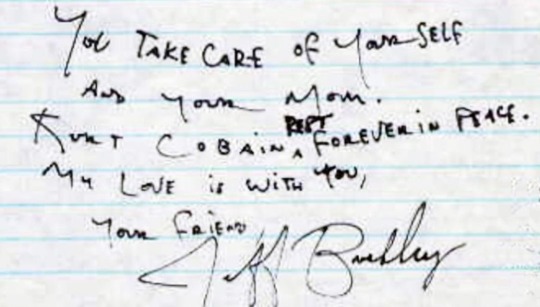 You TAKE CARE of YourSELF
AND your Mom.
KURT COBAIN, REST FOREVER IN PEACE.
My LOVE is WITH You,
Your FRIEND
Jeff Buckley